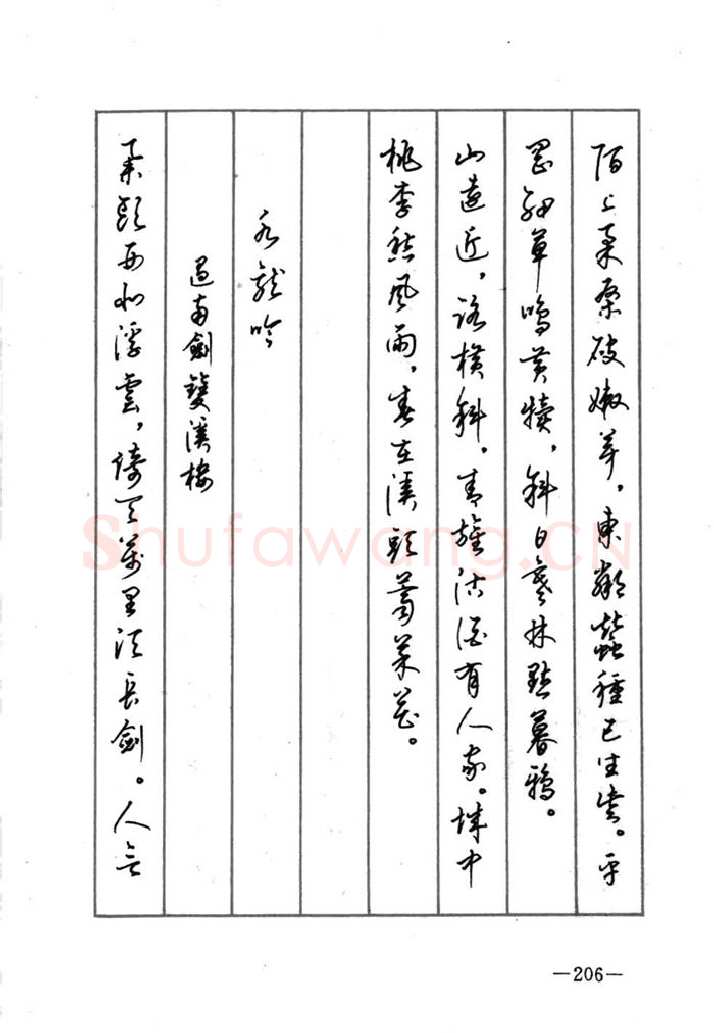 陌上柔桑破嫩芽，東鄰蠶種已生些。平
岡細草鳴黄犢，斜日寒林點暮鴉。
山遠近，路横斜，青旗沽酒有人家。城中
桃李愁風雨，春在溪頭薺菜花。
水龍吟
過南劍雙溪樓
舉頭西北浮雲，倚天萬里須長劍。人言
Shufawang.CN
—206—